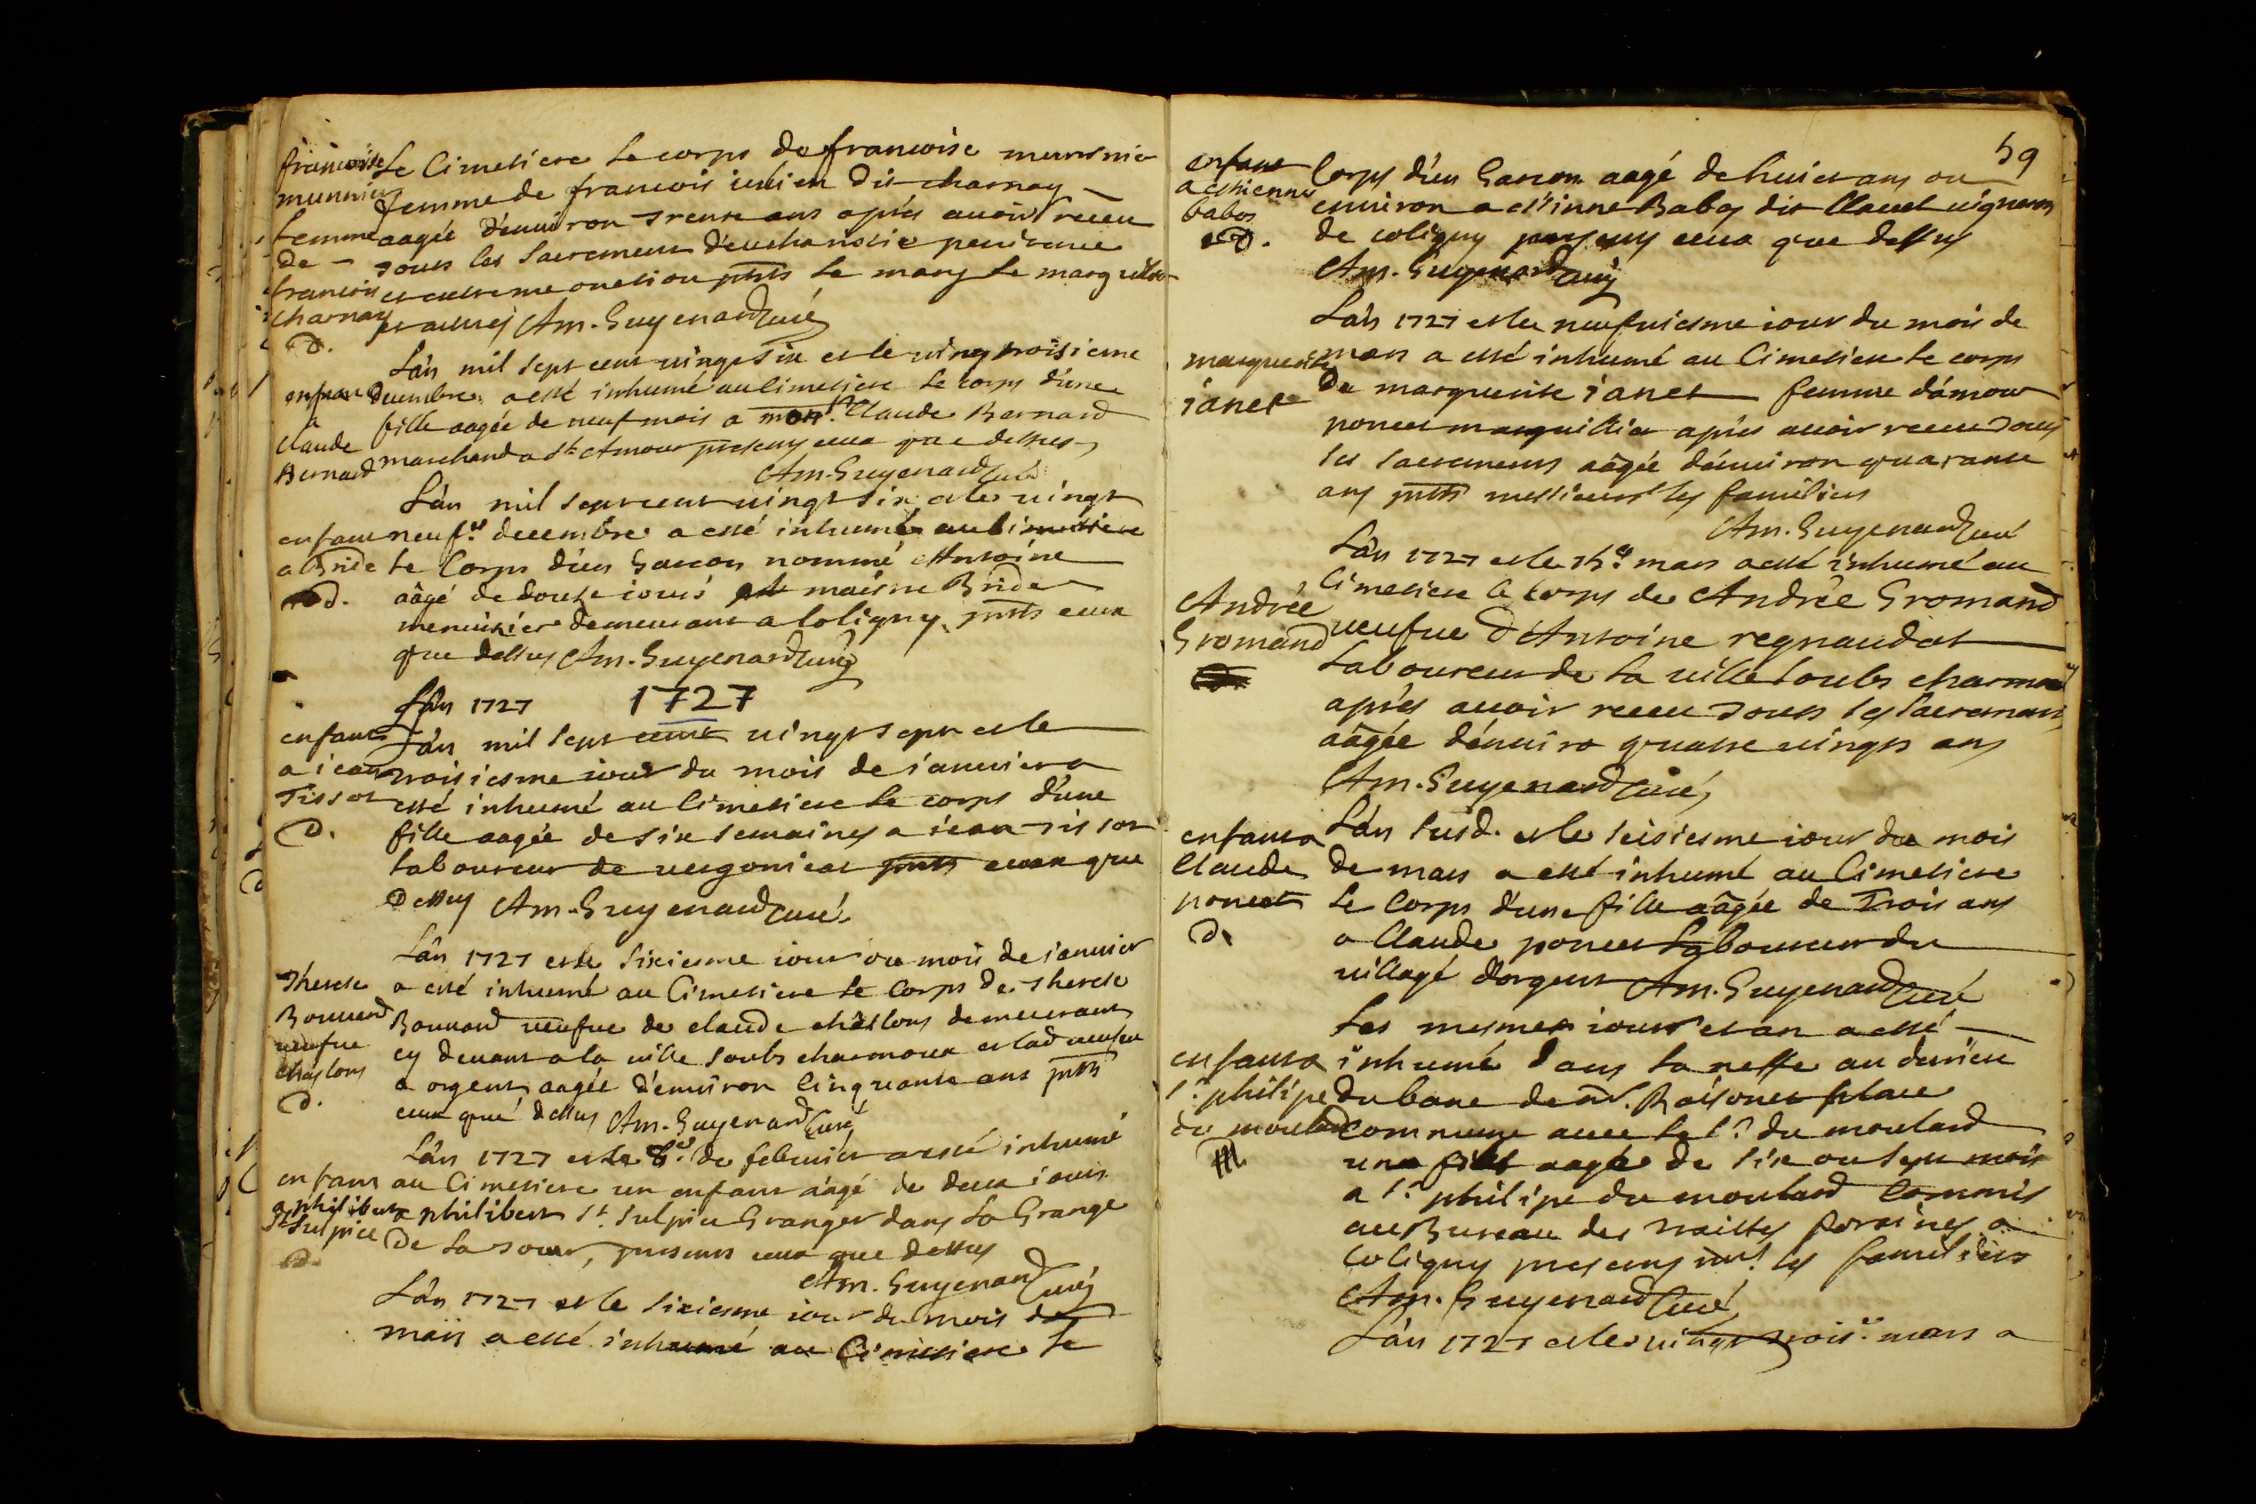 francoise
munnier
femme
de -
francois
charnay
d.
Le Cimetiere le corps de francoise munnier
femme de francois iulien dit charnay
aagée d'enuiron trente ans aprés auoir receu
tous les sacremens d'eucharistie penitence
et extreme onction pnts le mary le marguillier
et autres Am. Guyenard curé
enfant
a
Claude
Bernard
L'an mil sept cent vingt six et le vingt troisieme
decembre a esté inhumé au Cimetiere le corps d'une
fille aagée de neuf mois a Claude Bernard
marchand a St Amour presens ceux que dessus
Am. Guyenard curé
enfant
a Bride
d.
L'an mil sept cent vingt six et le vingt
neuf.e decembre a esté inhumé au Cimetiere
le Corps d'un Garcon nommé Antoine
aâgé de douse iours maitre Bride
menuisier demeurant a Coligny pnts ceux
que dessus Am. Guyenard curé
L'an 1727 1727
enfant
a iean
Tissot
d.
L'an mil sept cent vingt sept et le
troisiesme iour du mois de ianuier a
esté inhumé au Cimetiere le corps d'une
fille aagée de six semaines a iean tissot
laboureur de vergonieat pnts ceux que
dessus Am. Guyenard curé
Therese
Bouuard
veufue
chaslons
d.
L'an 1727 et le sixiesme iour du mois de ianuier
a esté inhumé au Cimetiere le Corps de Therese
Bouuard veufue de claude châslons demeurant
cy deuant a la ville soubs charmoux et lad veufue
a orgent aagée d'enuiron Cinquante ans pnts
ceux que dessus Am. Guyenard Curé
enfant
a philibert
St Sulpice
d.
L'an 1727 et le 8.e de febrvier a esté inhumé
au Cimetiere un enfant aâgé de deux iours
a philibert St Sulpice Granger dans la Grange
de la tour, presens ceux que dessus
Am. Guyenard curé
L'an 1727 et le sixiesme iour du mois de
mars a esté inhumé au Cimetiere le
59
enfant
a estienne
babos
d.
Corps d'un Garcon aagé de huict ans ou
enuiron a estienne Babos dit Clauet vigneron
de coligny presens ceux que dessus
Am. Guyenard curé
marguerite
ianet
L'an 1727 et le neufuiesme iour du mois de
mars a esté inhumé au Cimetiere le corps
de marguerite ianet femme d'amour
poncet marguillier aprés auoir receu tous
les sacremens aâgée d'enuiron quarante
ans pnts messieurs les familiers
Am. Guyenard curé
Andrée
Gromand
L'an 1727 et le 15.e mars a esté inhumé au
Cimetiere le Corps de Andrée Gromand
veufue d'Antoine regnaudat
Laboureur de la ville soubs charmoux
aprés auoir receu tous les sacremens
aâgée d'enuiro quatre vingts ans
Am. Guyenard curé
enfant a
Claude
poncet
d.
L'an susd. et le seisiesme iour du mois
de mars a esté inhumé au Cimetiere
le Corps d'une fille aâgée de Trois ans
a Claude poncet Laboureur du
village d'orgent Am. Guyenard Curé
enfant a
s.r philipe
du moulard
Les mesmes iour et an a esté
inhumé dans la neffe au derriere
du banc de place
commune auec le s.r du moulard
une fille aagée de six ou sept mois
a s.r philipe du moulard Commis
au Bureau des traittes foraines a
Coligny presens mrs les familiers
Am. Guyenard Curé
L'an 1727 et le vingt trois.e mars a